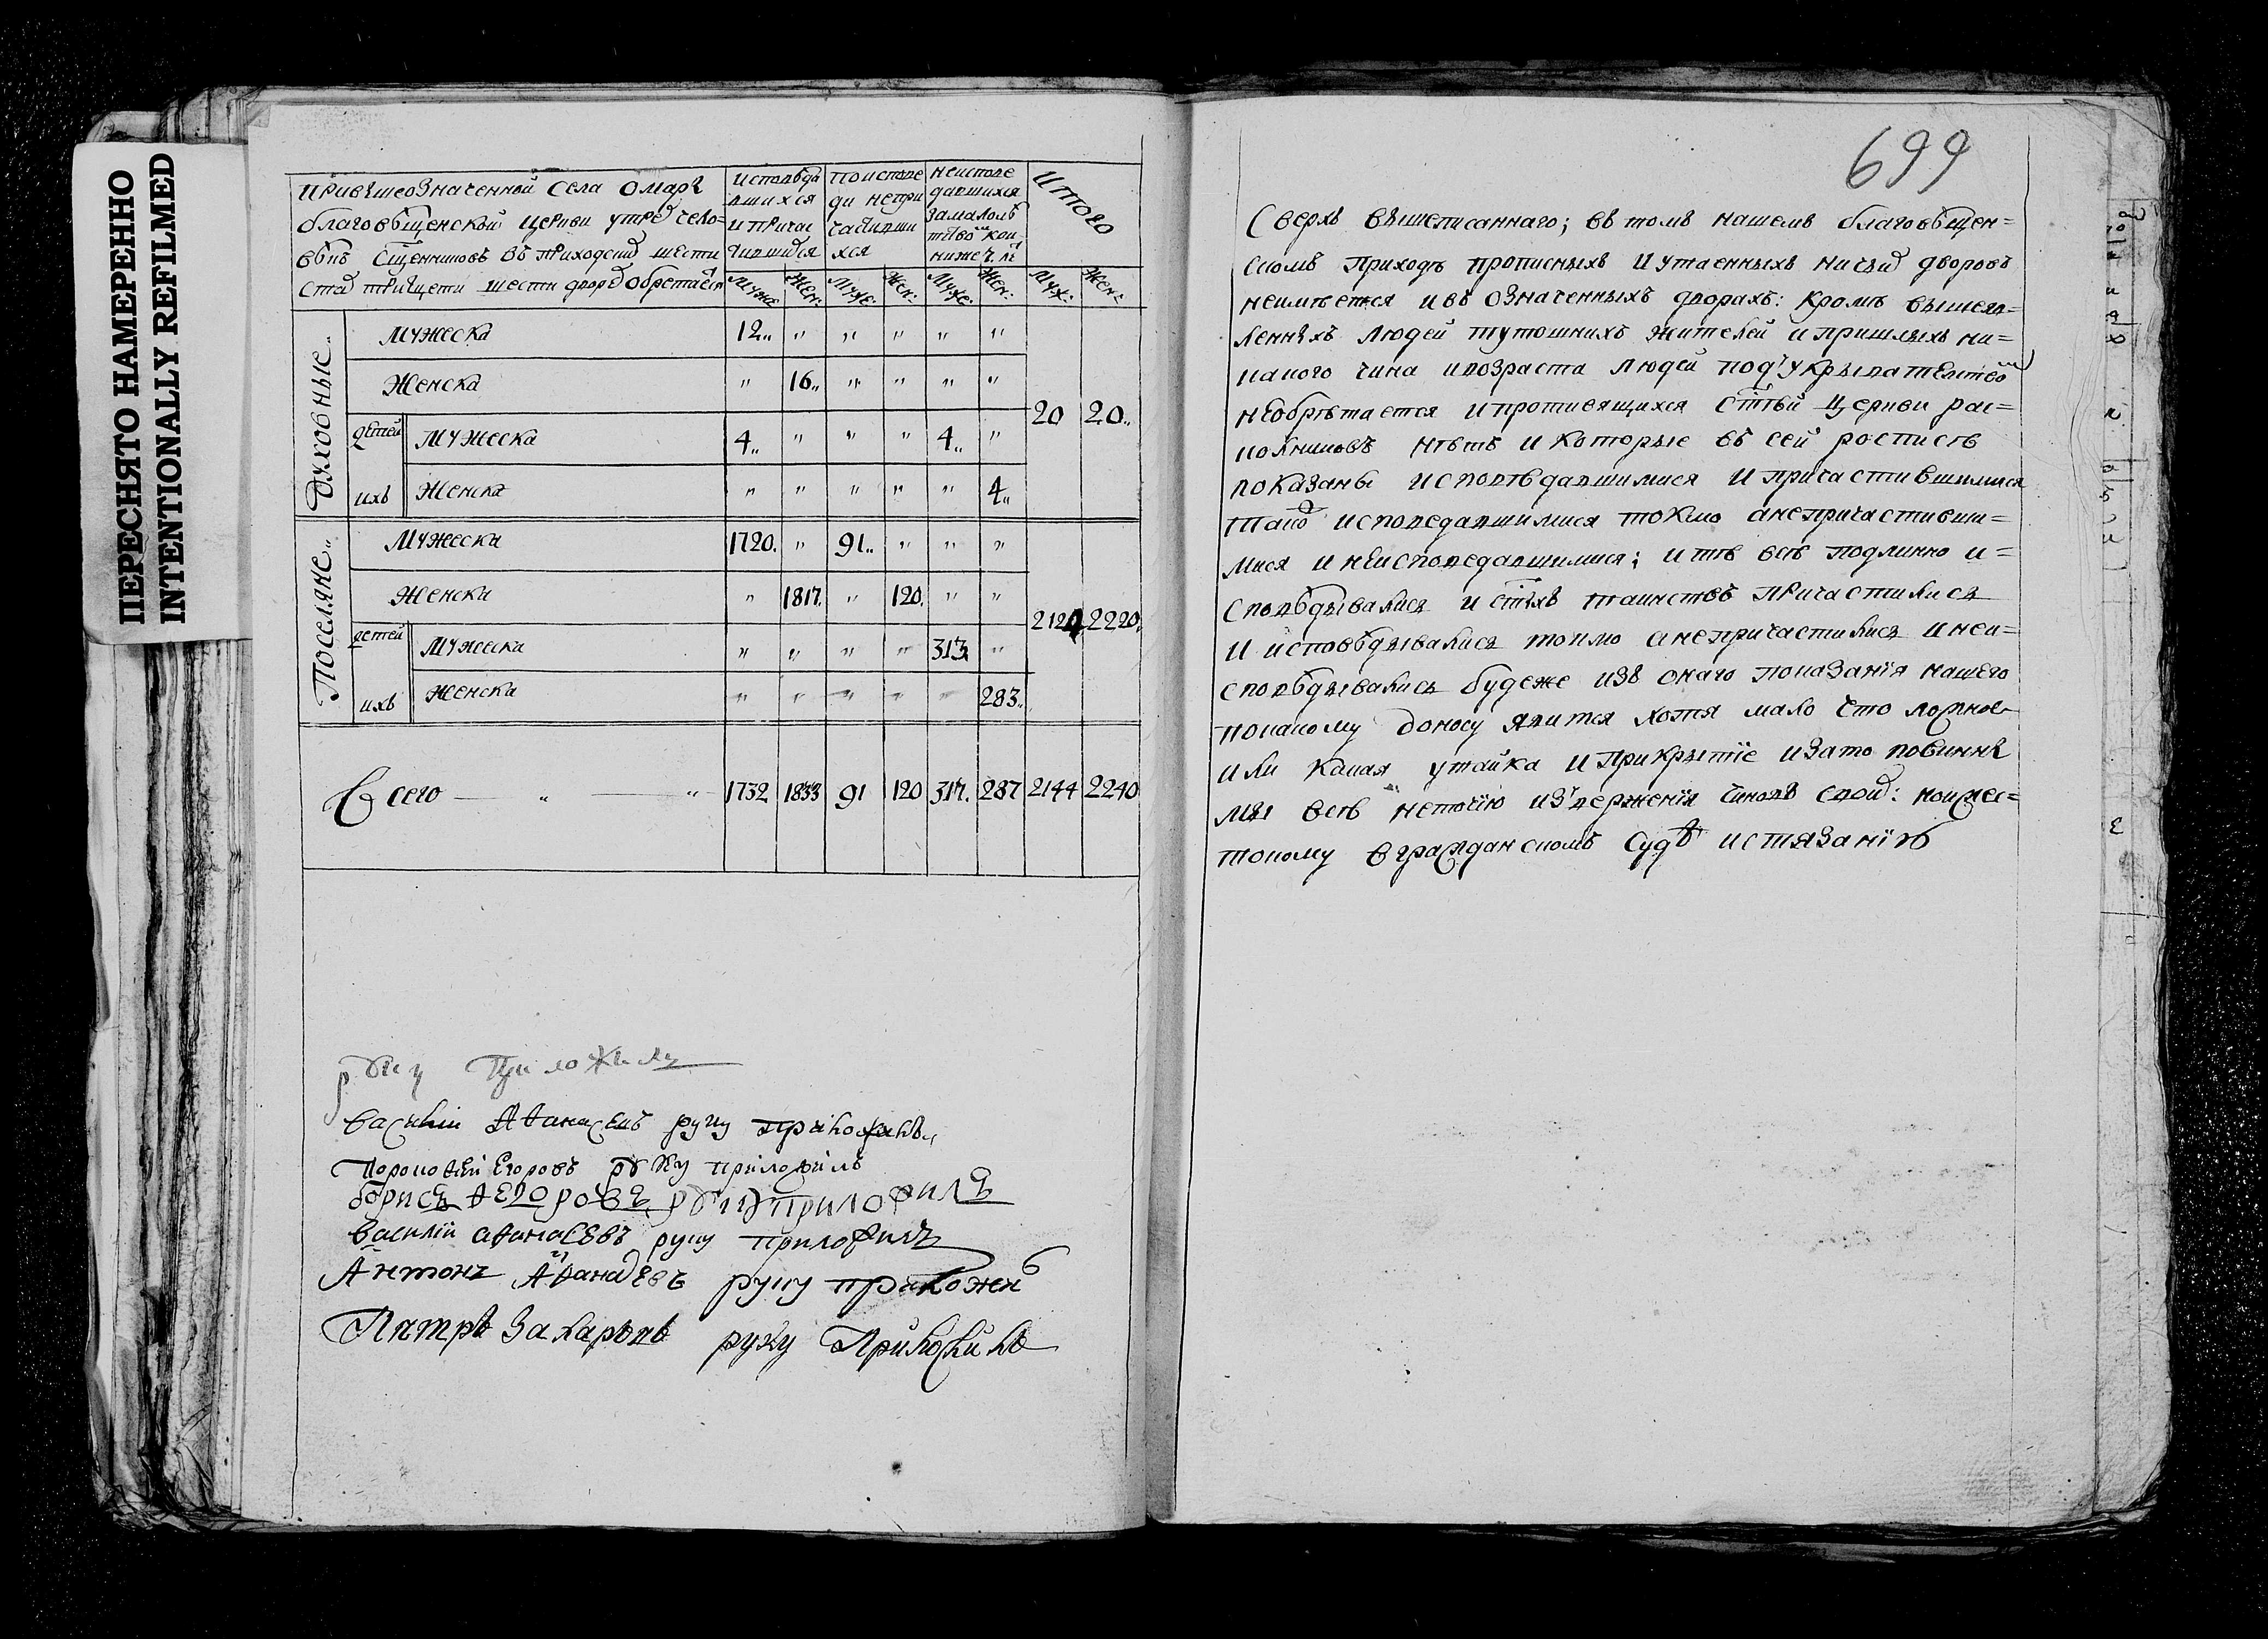 ПЕРЕСНЯТО НАМЕРЕННО
INTENTIONALLY REFILMED
При вышеозначенной Села Омарѣ
благовѣщенской церкви у трех чело=
вѣкъ Сщенниковъ въ приходскихъ шести
Стах тритцети шести дворѣх обретается
исповѣда
вшихся
и причас
тившихся
по испове
ди непри
частивши
хся
не испове
давшихся
за малолѣ
тство
Итого
Муже: Жен: Муже: Жен: Муже: Жен: Муж: Жен:
Духовные
Мужеска 12 " " " " "
Женска " 16 " " " " 20 20
детей Мужеска 4 " " " 4 "
ихъ Женска " " " " " 4
Поселяне
Мужеска 1720 " 91 " " "
Женска " 1817 " 120 " " 2124 2220
детей Мужеска " " " " 313 "
ихъ Женска " " " " " 283
Всего — " — " 1732 1833 91 120 317 287 2144 2240
руку Приложилъ
василий Афанасевъ руку приложилъ
Егоровъ руку приложилъ
борисъ Федоровъ руку приложилъ
василий афанасевъ руку приложилъ
Антонъ Афанасевъ руку приложилъ
Петръ Захаровъ руку Приложилъ
699
Сверхъ вышеписаннаго; въ томъ нашемъ благовѣщен=
скомъ приходѣ прописныхъ и утаенныхъ ничьихъ дворовъ
неимѣется и въ означенныхъ дворахъ: кромѣ вышеяв=
ленныхъ людей тутошнихъ жителей и пришлыхъ ни=
какого чина и возраста людей под укрывательством
необрѣтается и противящихся стѣй церкви рас=
колниковъ нѣтъ и которые въ сей росписѣ
показаны исповѣдавшимися и причастившимися
такоже исповедавшимися токмо а непричастивши=
мися и неисповедавшимися; и тѣ всѣ подлинно и=
споведывались и стыхъ таинствъ причастились
и исповѣдывались токмо а непричастились и неи=
споведывались будеже изъ онаго показанїя нашего
покакому доносу явится хотя мало что ложное
или какая утайка и прикрытїе и за то повинны
мы всѣ неточїю изверженїя чиновъ своих: но и жес=
токому в гражданскомъ Судѣ истязанїю